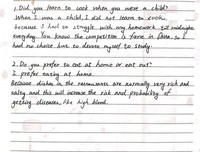 1. Did you learn to cook when you were a child?
When I was a child, I did not learn to cook,
because I had to struggle with my homework till midnight
everyday. You know the competition is fierce in China, so I
had no choice but to devote myself to study.
2. Do you prefer to eat at home or eat out?
I prefer eating at home.
Because dishes in the restaurants are normally very rich and
salty and this will increase the risk and probability of
getting diseases, like high blood.